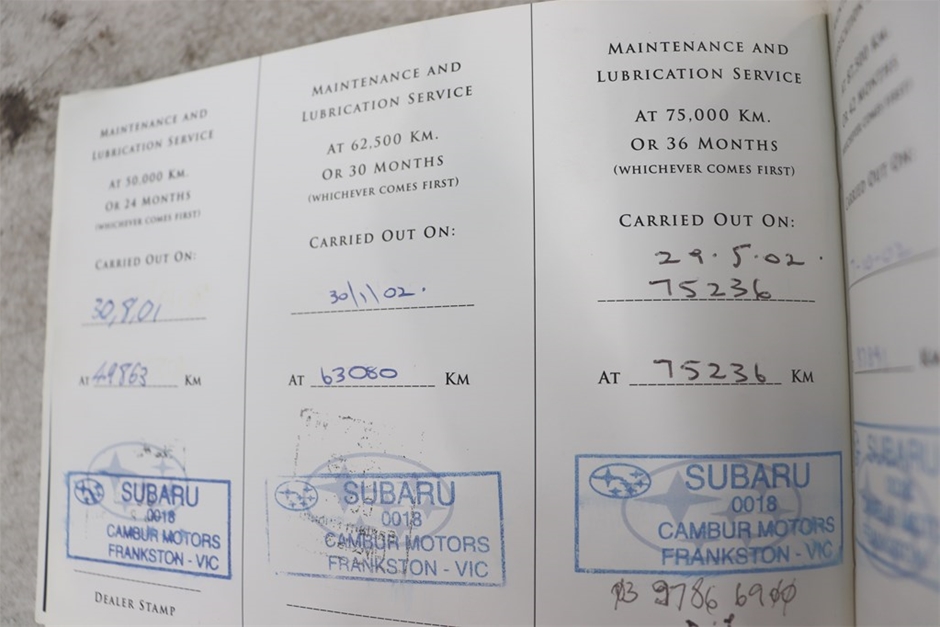 MAINTENANCE AND
LUBRICATION SERVICE
AT 50,000 KM.
OR 24 MONTHS
(WHICHEVER COMES FIRST)
CARRIED OUT ON:
30,8,01
AT 49863 KM
SUBARU
0018
CAMBUR MOTORS
FRANKSTON - VIC
DEALER STAMP
MAINTENANCE AND
LUBRICATION SERVICE
AT 62,500 KM.
OR 30 MONTHS
(WHICHEVER COMES FIRST)
CARRIED OUT ON:
30/1/02.
AT 63080 KM
SUBARU
0018
CAMBUR MOTORS
FRANKSTON - VIC
MAINTENANCE AND
LUBRICATION SERVICE
AT 75,000 KM.
OR 36 MONTHS
(WHICHEVER COMES FIRST)
CARRIED OUT ON:
29.5.02.
75236
AT 75236 KM
SUBARU
0018
CAMBUR MOTORS
FRANKSTON - VIC
9786 6900